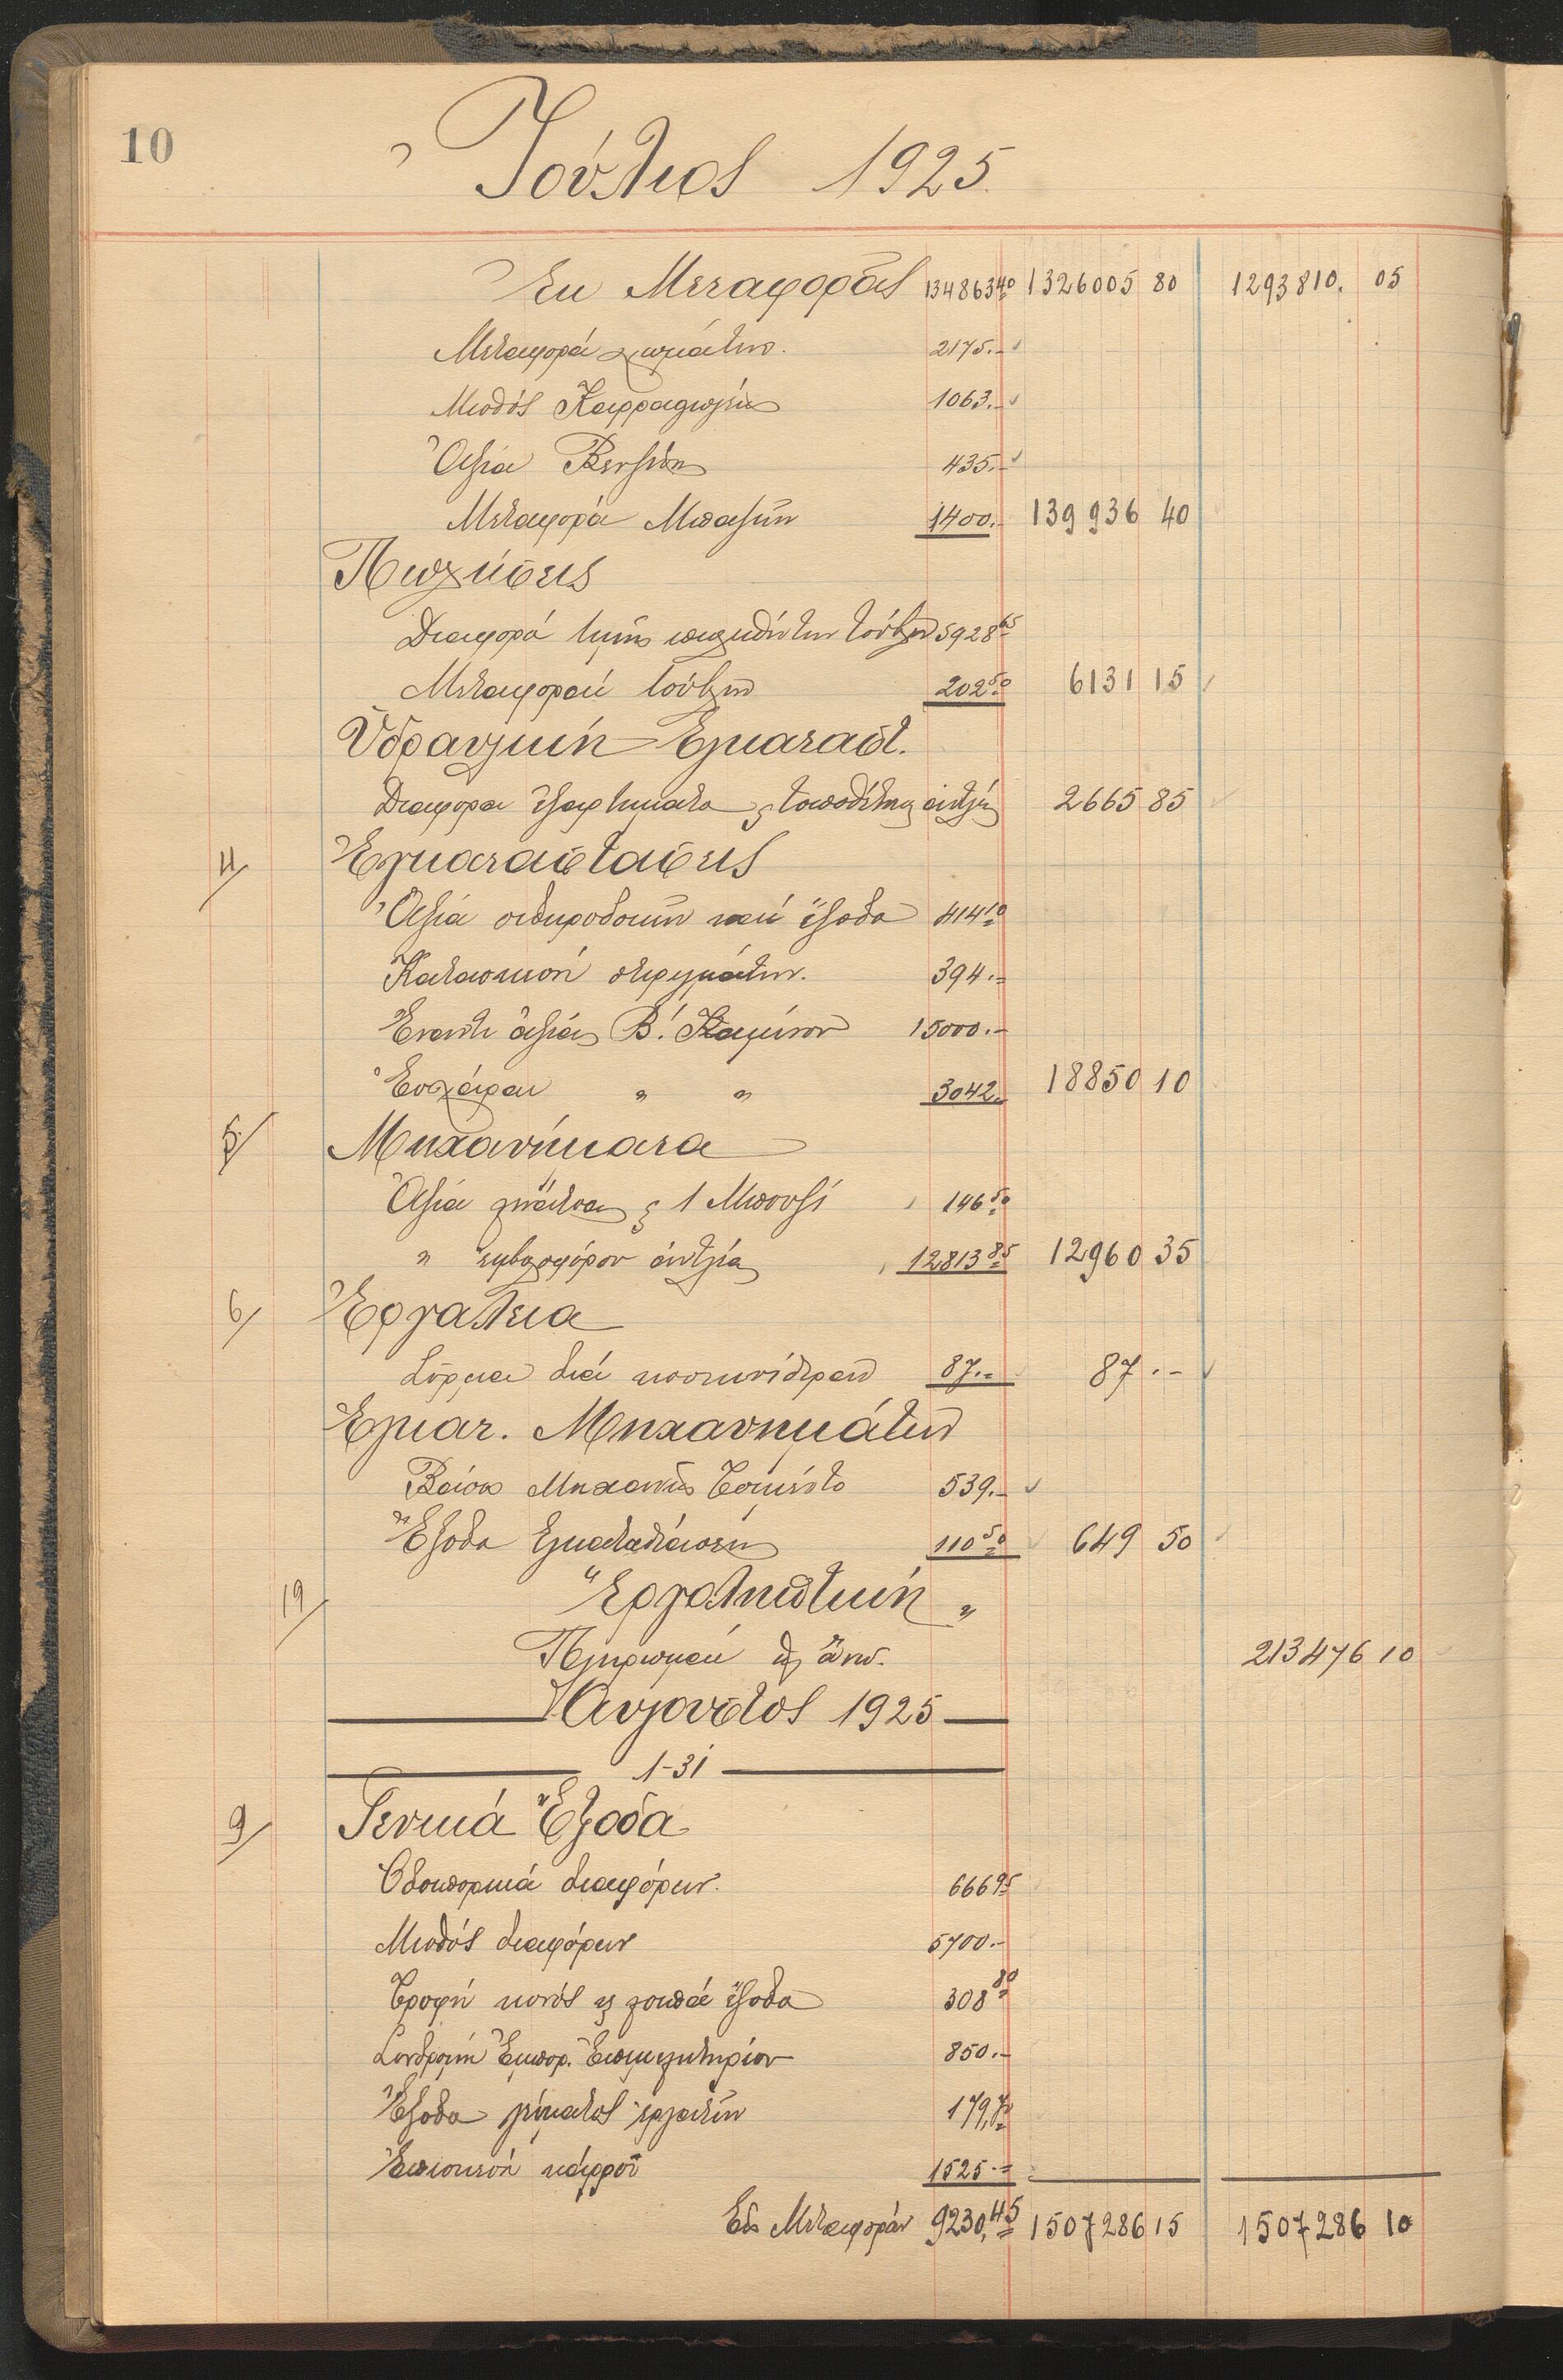 10
Ἰούλιος 1925.
Ἐκ Μεταφορᾶς 134863 40 1326005 80 1293810. 05
Μεταφορά χωμάτων. 2175.-
Μισθός Καρραγωγέως 1063.-
Ἀξία Βενζίνης 435.-
Μεταφορά Μπαζῶν 1400.- 139936 40
Πωλήσεις
Διαφορά τιμῆς πωληθέντων τούβλων 5928 65
Μεταφοραί τούβλων 202 50 6131 15
Ὑδραυλική Ἐγκαταστ.
Διάφορα ἐξαρτήματα ϗ τοποθέτησις ἀντλίας 2665 85
4/ Ἐγκαταστάσεις
Ἀξία σιδηροδοκῶν καί ἔξοδα 414 10
Κατασκευή στεγμάτων. 394.-
Ἔναντι ἀξίας Β! Καμίνου 15000.-
Ἐσχάραι " " 3042.- 18850 10
5/ Μηχανήματα
Ἀξία ϗ 1 Μπουζί 146 50
" ἐμβολοφόρου ἀντλίας 12813 85 12960 35
6/ Ἐργαλεῖα
Σύρμα διά κοσκινίστραν 87.- 87.-
Ἐγκατ. Μηχανημάτων
Βάσις Μηχανῆς Τσιμέντο 539.-
Ἔξοδα Ἐγκαταστάσεως 110 50 649 50
19/ Ἐργοληπτική "
Πληρωμαί ὡς ἄνω. 213476 10
Αὔγουστος 1925
1-31
9/ Γενικά Ἔξοδα
Ὁδοιπορικά διαφόρων. 666 95
Μισθός διαφόρων 5700.-
Τροφή κυνός ϗ λοιπά ἔξοδα 308 80
Συνδρομή Ἐμπορ. Ἐπιμελητηρίου 850.-
Ἔξοδα γεύματος ἐργατῶν 179,70
Ἐπισκευή κάρρου 1525.-
Εἰς Μεταφοράν 9230,45 1507286 15 1507286 10